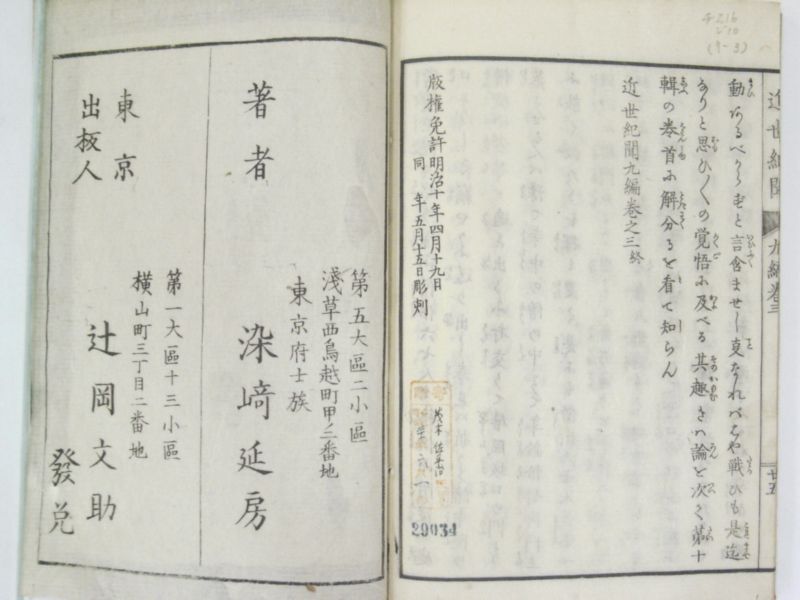 近世紀聞 九編巻三
廿五
動あるべからずと言含ませし真なればはや戦ひも是迄
なりと思ひ〱の覚悟に及べる其趣きハ論と次く第十
輯の巻首に解分るを看て知らん
近世紀聞九編巻之三終
版権免許明治十年四月十九日
同年五月十五日彫刻
29034
第五大區二小區
淺草西鳥越町甲三番地
東京府士族
著者 染﨑延房
第一大區十三小區
横山町三丁目二番地
東京
出板人 辻岡文助
發兌